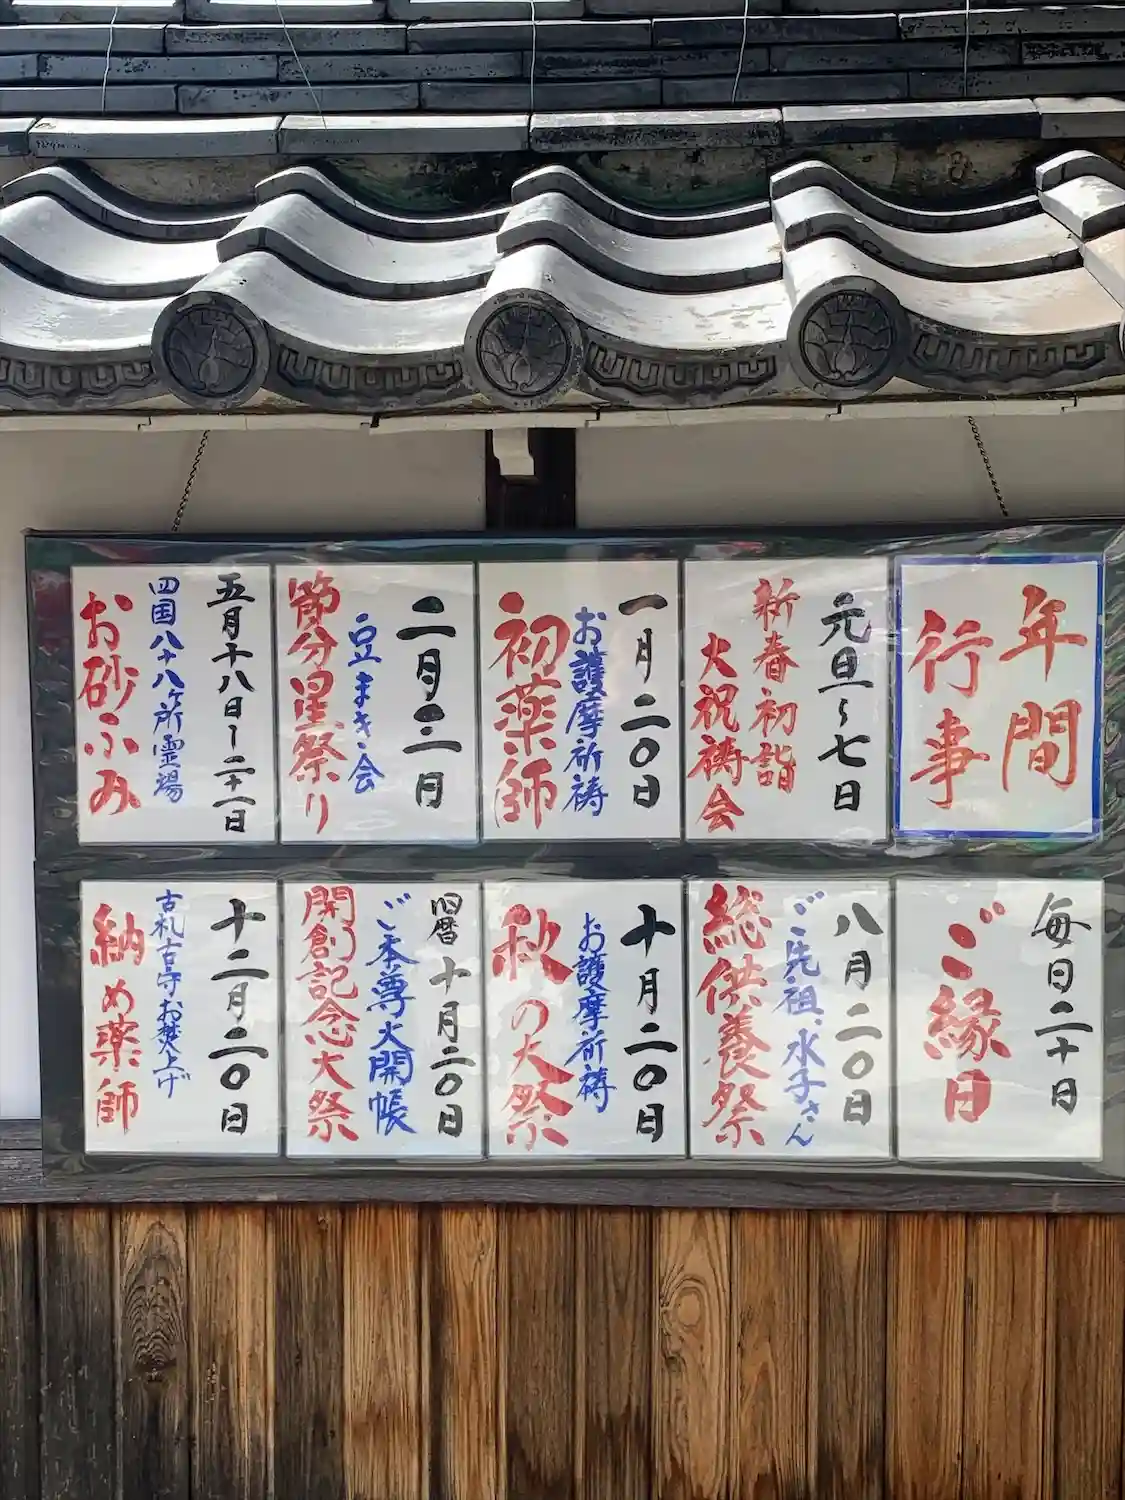 年間
行事
元旦～七日
新春初詣
大祝祷会
一月二〇日
お護摩祈祷
初薬師
二月三日
豆まき会
節分星祭り
五月十八日～二十一日
四国八十八ヶ所霊場
お砂ふみ
毎月二十日
ご縁日
八月二〇日
ご先祖、水子さん
総供養祭
十月二〇日
お護摩祈祷
秋の大祭
旧暦十月二〇日
ご本尊大開帳
開創記念大祭
十二月二〇日
古札古守お焚上げ
納め薬師